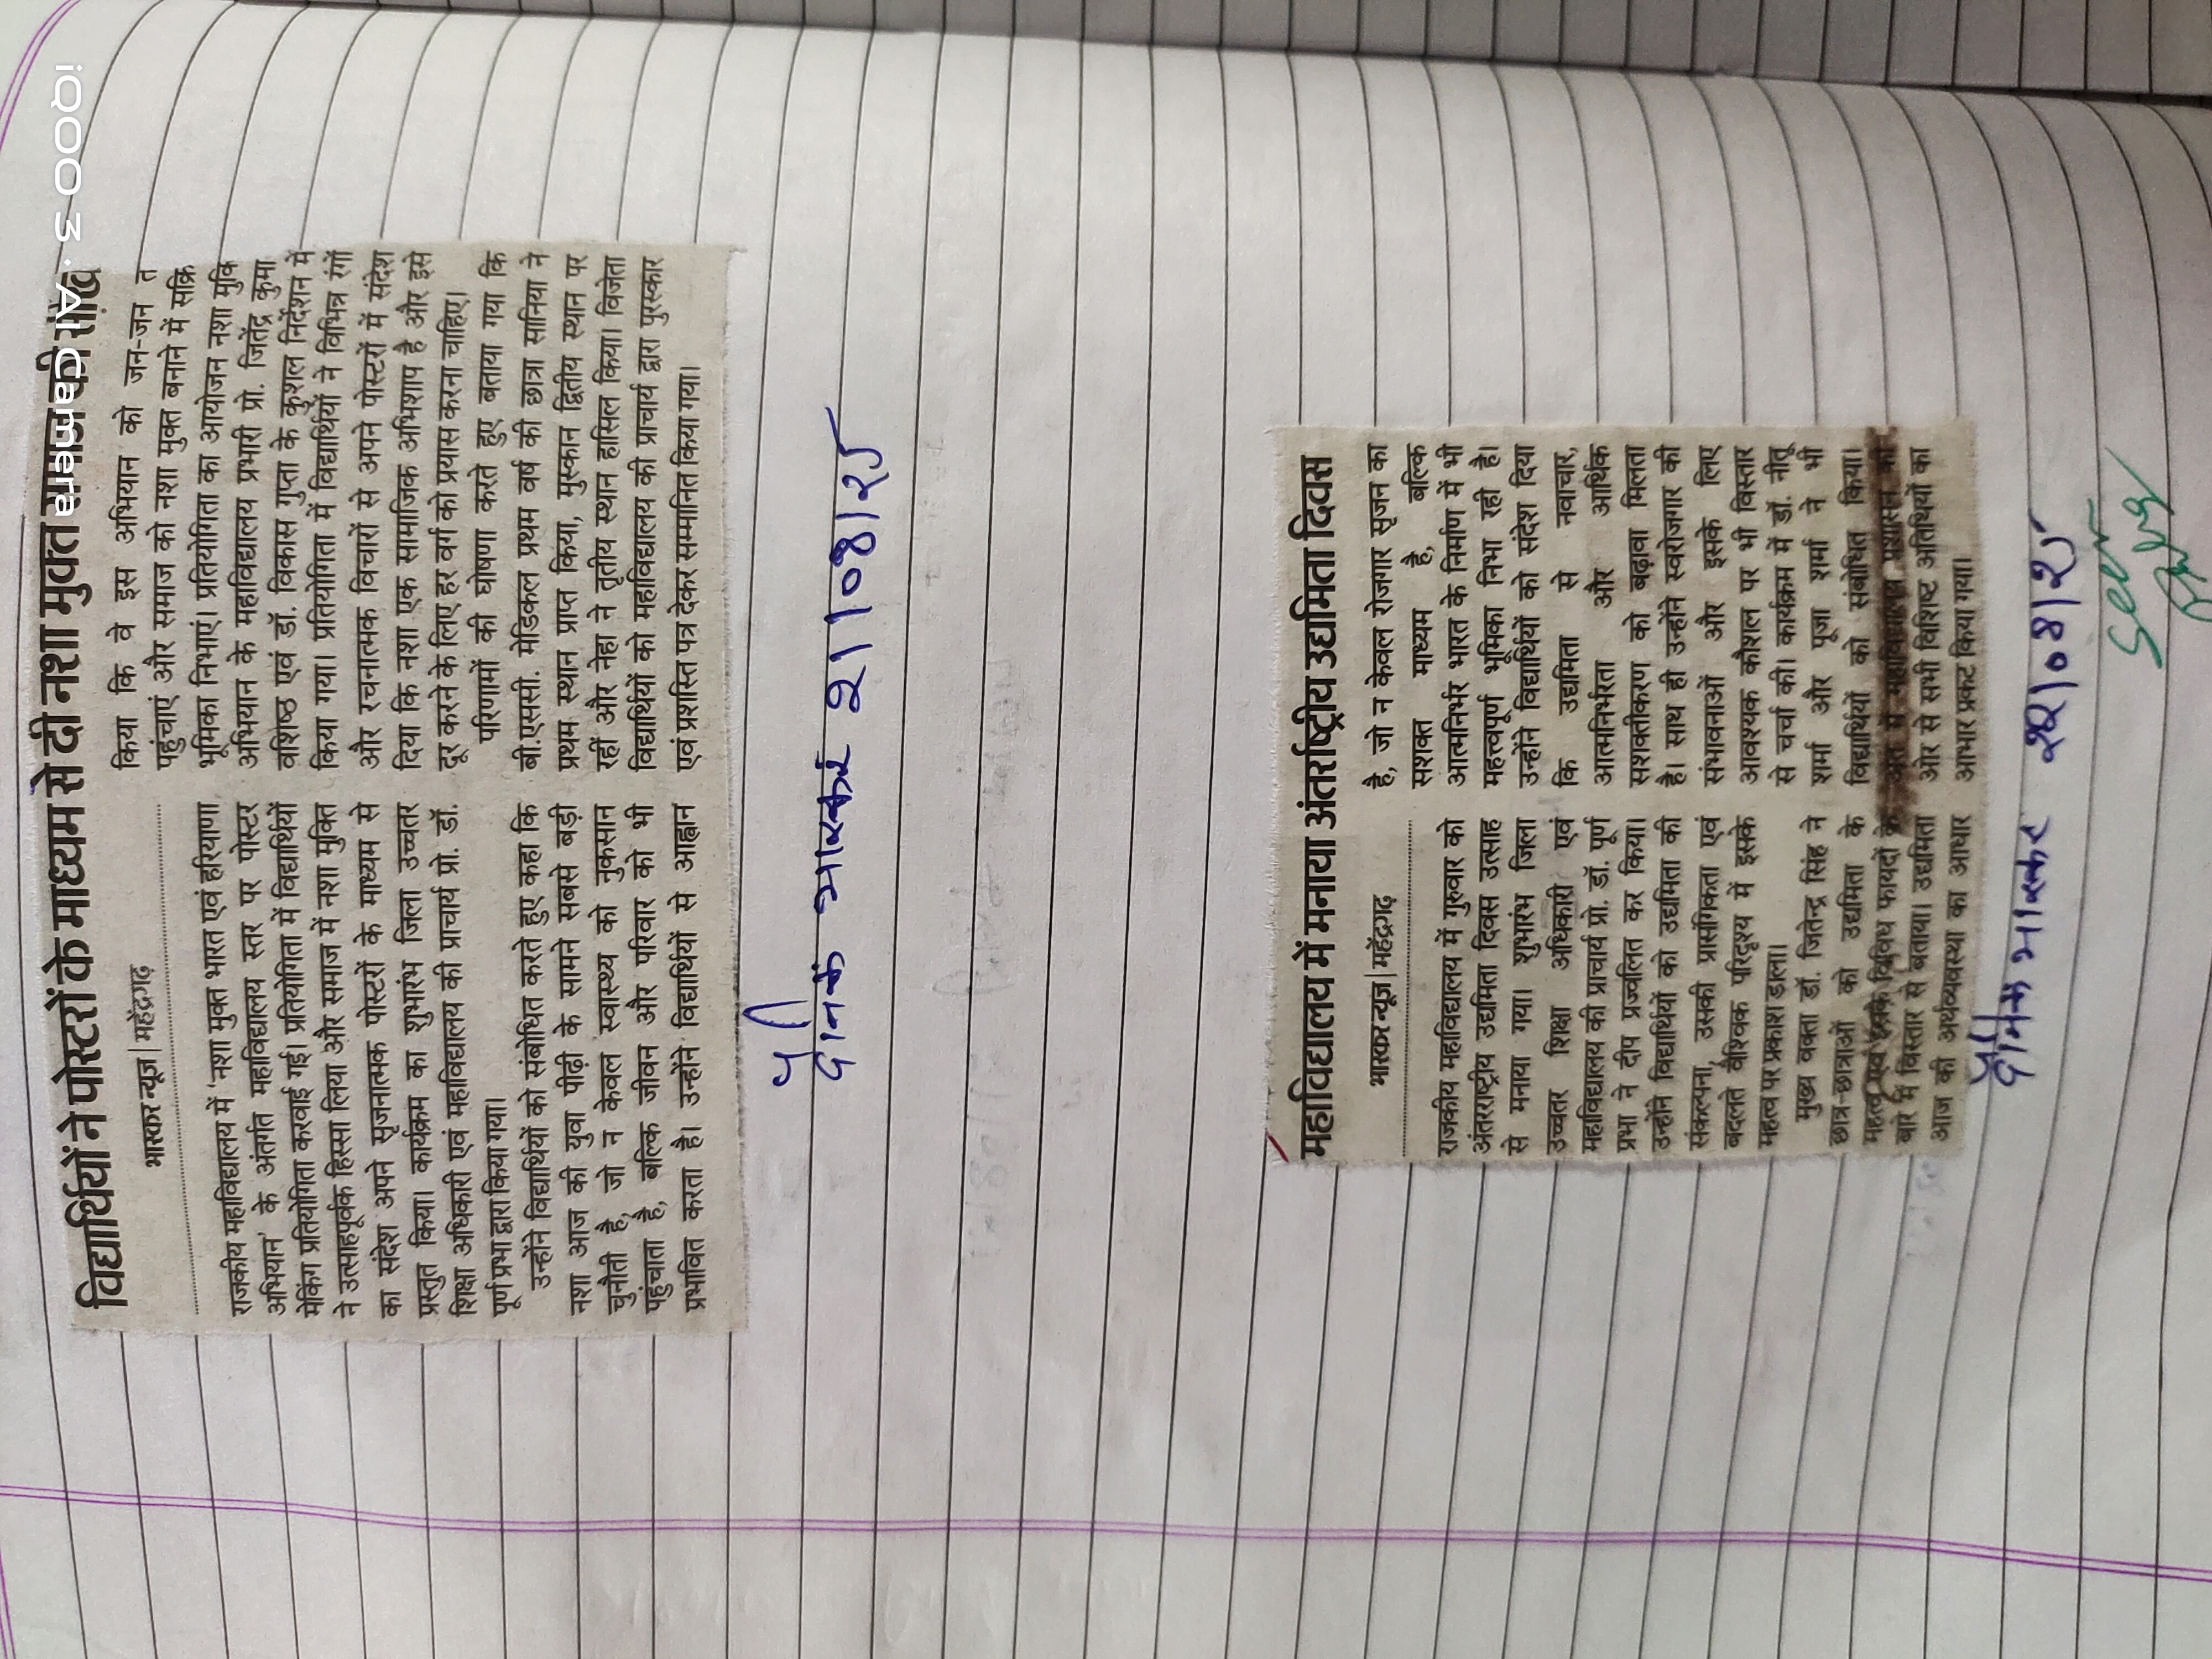 विद्यार्थियों ने पोस्टरों के माध्यम से दी नशा मुक्त समाज की सीख
भास्कर न्यूज | महेंद्रगढ़
राजकीय महाविद्यालय में 'नशा मुक्त भारत एवं हरियाणा
अभियान' के अंतर्गत महाविद्यालय स्तर पर पोस्टर
मेकिंग प्रतियोगिता करवाई गई। प्रतियोगिता में विद्यार्थियों
ने उत्साहपूर्वक हिस्सा लिया और समाज में नशा मुक्ति
का संदेश अपने सृजनात्मक पोस्टरों के माध्यम से
प्रस्तुत किया। कार्यक्रम का शुभारंभ जिला उच्चतर
शिक्षा अधिकारी एवं महाविद्यालय की प्राचार्य प्रो. डॉ.
पूर्ण प्रभा द्वारा किया गया।
उन्होंने विद्यार्थियों को संबोधित करते हुए कहा कि
नशा आज की युवा पीढ़ी के सामने सबसे बड़ी
चुनौती है, जो न केवल स्वास्थ्य को नुकसान
पहुंचाता है, बल्कि जीवन और परिवार को भी
प्रभावित करता है। उन्होंने विद्यार्थियों से आह्वान
किया कि वे इस अभियान को जन-जन त
पहुंचाएं और समाज को नशा मुक्त बनाने में सक्रि
भूमिका निभाएं। प्रतियोगिता का आयोजन नशा मुक्ति
अभियान के महाविद्यालय प्रभारी प्रो. जितेंद्र कुमा
वशिष्ठ एवं डॉ. विकास गुप्ता के कुशल निर्देशन में
किया गया। प्रतियोगिता में विद्यार्थियों ने विभिन्न रंगों
और रचनात्मक विचारों से अपने पोस्टरों में संदेश
दिया कि नशा एक सामाजिक अभिशाप है और इसे
दूर करने के लिए हर वर्ग को प्रयास करना चाहिए।
परिणामों की घोषणा करते हुए बताया गया कि
बी.एससी. मेडिकल प्रथम वर्ष की छात्रा सानिया ने
प्रथम स्थान प्राप्त किया, मुस्कान द्वितीय स्थान पर
रहीं और नेहा ने तृतीय स्थान हासिल किया। विजेता
विद्यार्थियों को महाविद्यालय की प्राचार्य द्वारा पुरस्कार
एवं प्रशस्ति पत्र देकर सम्मानित किया गया।
दैनिक भास्कर 21/08/25
महाविद्यालय में मनाया अंतर्राष्ट्रीय उद्यमिता दिवस
भास्कर न्यूज | महेंद्रगढ़
राजकीय महाविद्यालय में गुरुवार को
अंतरराष्ट्रीय उद्यमिता दिवस उत्साह
से मनाया गया। शुभारंभ जिला
उच्चतर शिक्षा अधिकारी एवं
महाविद्यालय की प्राचार्य प्रो. डॉ. पूर्ण
प्रभा ने दीप प्रज्वलित कर किया।
उन्होंने विद्यार्थियों को उद्यमिता की
संकल्पना, उसकी प्रासंगिकता एवं
बदलते वैश्विक परिदृश्य में इसके
महत्व पर प्रकाश डाला।
मुख्य वक्ता डॉ. जितेन्द्र सिंह ने
छात्र-छात्राओं को उद्यमिता के
महत्व एवं इसके विविध फायदों के
बारे में विस्तार से बताया। उद्यमिता
आज की अर्थव्यवस्था का आधार
है, जो न केवल रोजगार सृजन का
सशक्त माध्यम है, बल्कि
आत्मनिर्भर भारत के निर्माण में भी
महत्त्वपूर्ण भूमिका निभा रही है।
उन्होंने विद्यार्थियों को संदेश दिया
कि उद्यमिता से नवाचार,
आत्मनिर्भरता और आर्थिक
सशक्तीकरण को बढ़ावा मिलता
है। साथ ही उन्होंने स्वरोजगार की
संभावनाओं और इसके लिए
आवश्यक कौशल पर भी विस्तार
से चर्चा की। कार्यक्रम में डॉ. नीतू
शर्मा और पूजा शर्मा ने भी
विद्यार्थियों को संबोधित किया।
अंत में महाविद्यालय प्रशासन की
ओर से सभी विशिष्ट अतिथियों का
आभार प्रकट किया गया।
दैनिक भास्कर 22/08/25
Seen
iQOO 3 · AI Camera